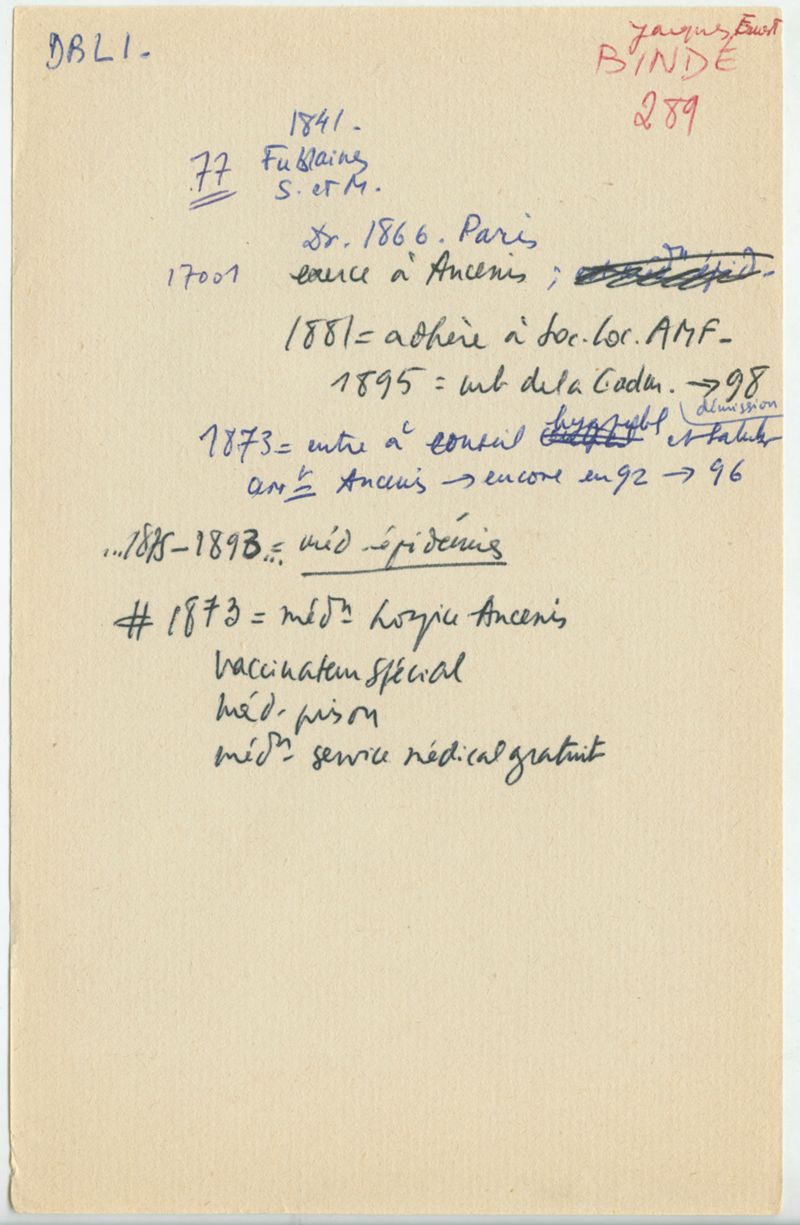 DBLI.
Jacques, Ernest
BINDÉ
289
1841.
77 Fublaines
S. et M.
Dr. 1866. Paris
17001 exerce à Ancenis ;
1881 = adhère à Soc. Loc. AMF.
1895 = mb de la → 98
démission
1873 = entre à conseil hyg publ et salub
arrt Ancenis → encore en 92 → 96
...1875-1893... = méd. épidémies
# 1873 = médn hospice Ancenis
vaccinateur spécial
méd. prison
médn service médical gratuit